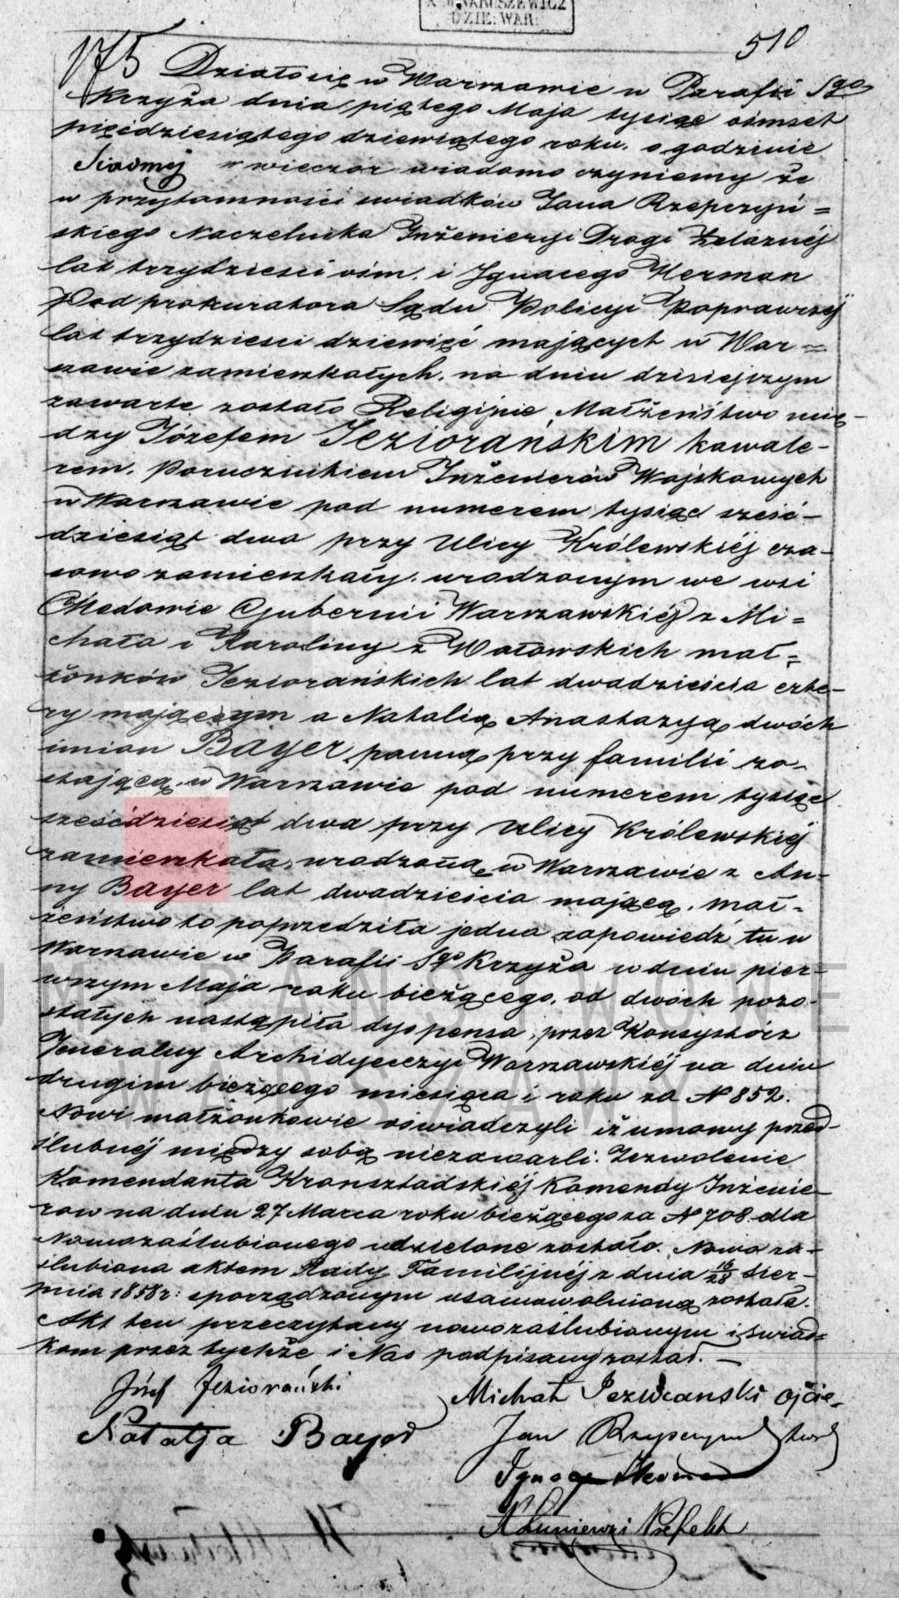 A. NARUSZEWICZ
DZIE: WAR:
510
175 Działo się w Warszawie w Parafii Sgo
Krzyża dnia piątego Maja tysiąc ośmset
pięćdziesiątego dziewiątego roku. o godzinie
Siódmej w wieczór wiadomo czyniemy że
w przytomności świadków Jana Rzepczyń=
skiego Naczelnika Inżenieryi Drogi Żelaznéj
lat trzydzieści ośm. i Ignacego Herman
Pod prokuratora Sądu Policyi Poprawczéj
lat trzydzieści dziewięć mających w War=
szawie zamieszkałych. na dniu dzisiejszym
zawarte zostało Religijnie Małżeństwo mię-
dzy Józefem Jeziorańskim kawale-
rem. Porucznikiem Inżenierów Wojskowych
w Warszawie pod numerem tysiąc sześć-
dziesiąt dwa przy Ulicy Królewskiéj cza-
sowo zamieszkały. urodzonym we wsi
Gubernii Warszawskiéj z Mi=
chała i Karoliny z Wołowskich mał=
żonków Jeziorańskich lat dwadzieścia czte-
ry mającym a Natalią Anastazyą dwóch
imion Bayer, panną przy familii zo-
stającą w Warszawie pod numerem tysiąc
sześćdziesiąt dwa przy Ulicy Królewskiéj
zamieszkałą, urodzoną w Warszawie z An-
ny Bayer lat dwadzieścia mającą. Mał-
żeństwo to poprzedziła jedna zapowiedź tu w
Warszawie w Parafii Sgo Krzyża w dniu pier-
wszym Maja roku bieżącego, od dwóch pozo-
stałych nastąpiła dyspensa, przez Konsystorz
Jeneralny Archidyecezyi Warszawskiéj na dniu
drugim bieżącego miesiąca i roku za N 852.
Nowi małżonkowie oświadczyli iż umowy przed-
ślubnéj między sobą niezawarli. Zezwolenie
Komendanta Kronsztadskiéj Komendy Inżenie-
rów na dniu 27 Marca roku bieżącego za N 708 dla
Nowozaślubionego udzielone zostało. Nowo za-
ślubiona aktem Rady Familijnéj z dnia 16/28 Sier-
pnia 1858 r: sporządzonym usamowolnioną została.
Akt ten przeczytany nowozaślubionym i świad-
kom przez tychże i Nas podpisany został. —
Józef Jeziorański
Michał Jeziorański ojciec
Natalja Bayer
Jan Rzepczyński
Ignacy Herman
Prefekt